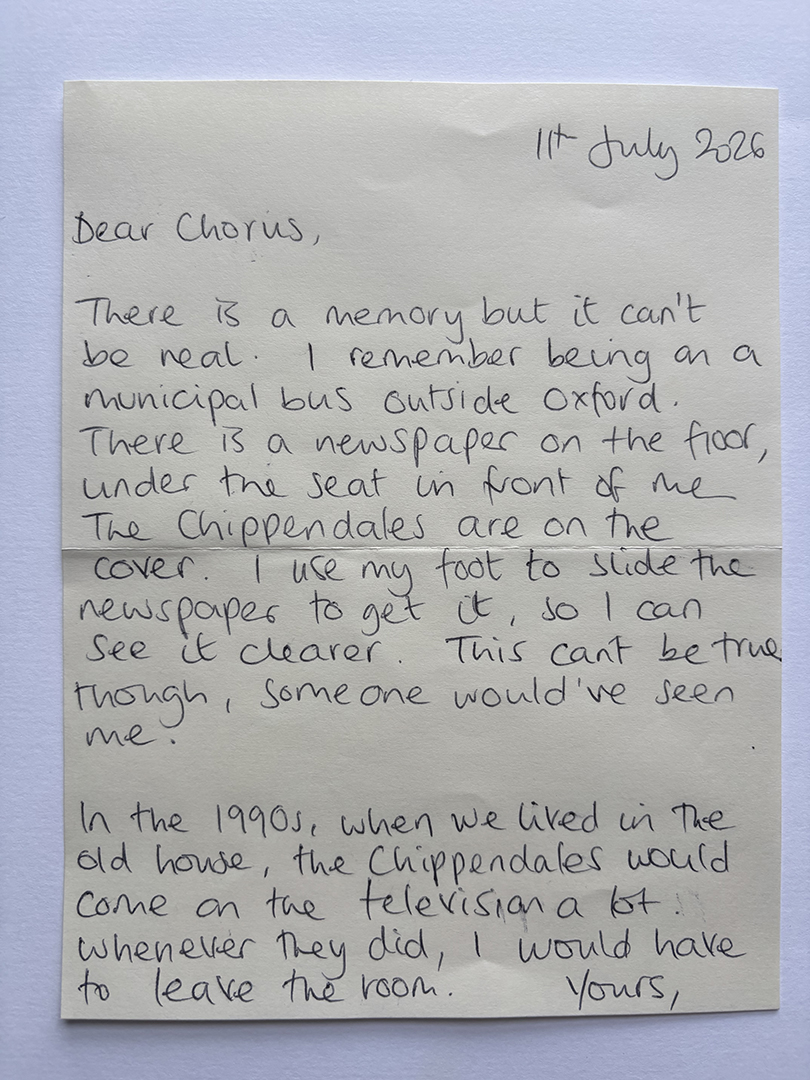 11th July 2026
Dear Chorus,
There is a memory but it can't
be real. I remember being on a
municipal bus outside Oxford.
There is a newspaper on the floor,
under the seat in front of me
The Chippendales are on the
cover. I use my foot to slide the
newspaper to get it, so I can
see it clearer. This cant be true
though, someone would've seen
me.
In the 1990s, when we lived in the
old house, the Chippendales would
come on the television a lot.
Whenever they did, I would have
to leave the room. Yours,